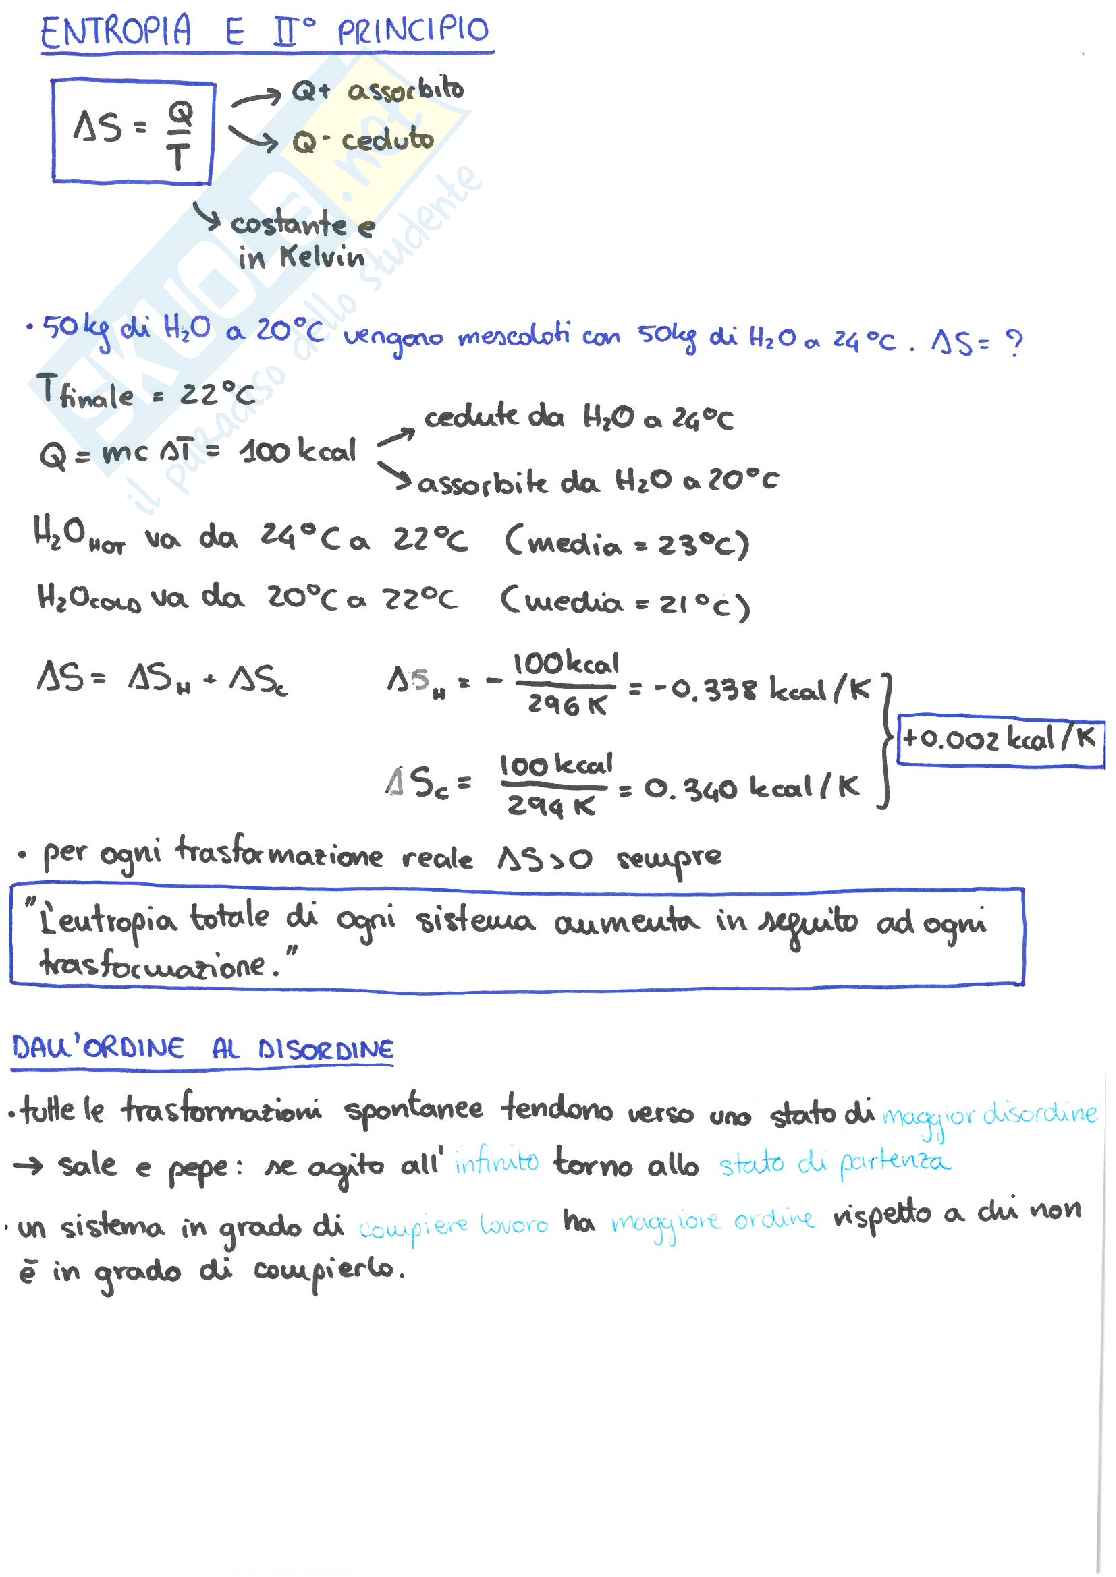 ENTROPIA E II° PRINCIPIO
ΔS = Q/T
Q+ assorbito
Q- ceduto
costante e
in Kelvin
SKUOLA.net
il paradiso dello studente
• 50kg di H₂O a 20°C vengono mescolati con 50kg di H₂O a 24°C. ΔS = ?
Tfinale = 22°C
Q = mc ΔT = 100 kcal
cedute da H₂O a 24°C
assorbite da H₂O a 20°C
H₂O HOT va da 24°C a 22°C (media = 23°C)
H₂O COLD va da 20°C a 22°C (media = 21°C)
ΔS = ΔS_H + ΔS_C
ΔS_H = - 100 kcal / 296 K = -0.338 kcal/K
ΔS_C = 100 kcal / 294 K = 0.340 kcal/K
+0.002 kcal/K
• per ogni trasformazione reale ΔS>0 sempre
"L'entropia totale di ogni sistema aumenta in seguito ad ogni
trasformazione."
DALL'ORDINE AL DISORDINE
• tutte le trasformazioni spontanee tendono verso uno stato di maggior disordine
→ sale e pepe: se agito all'infinito torno allo stato di partenza
• un sistema in grado di compiere lavoro ha maggiore ordine rispetto a chi non
è in grado di compierlo.